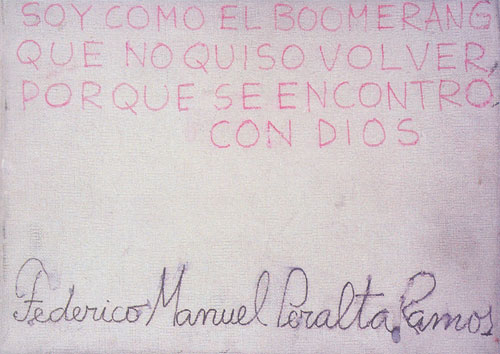 SOY COMO EL BOOMERANG
QUE NO QUISO VOLVER,
PORQUE SE ENCONTRÓ
CON DIOS
Federico Manuel Peralta Ramos